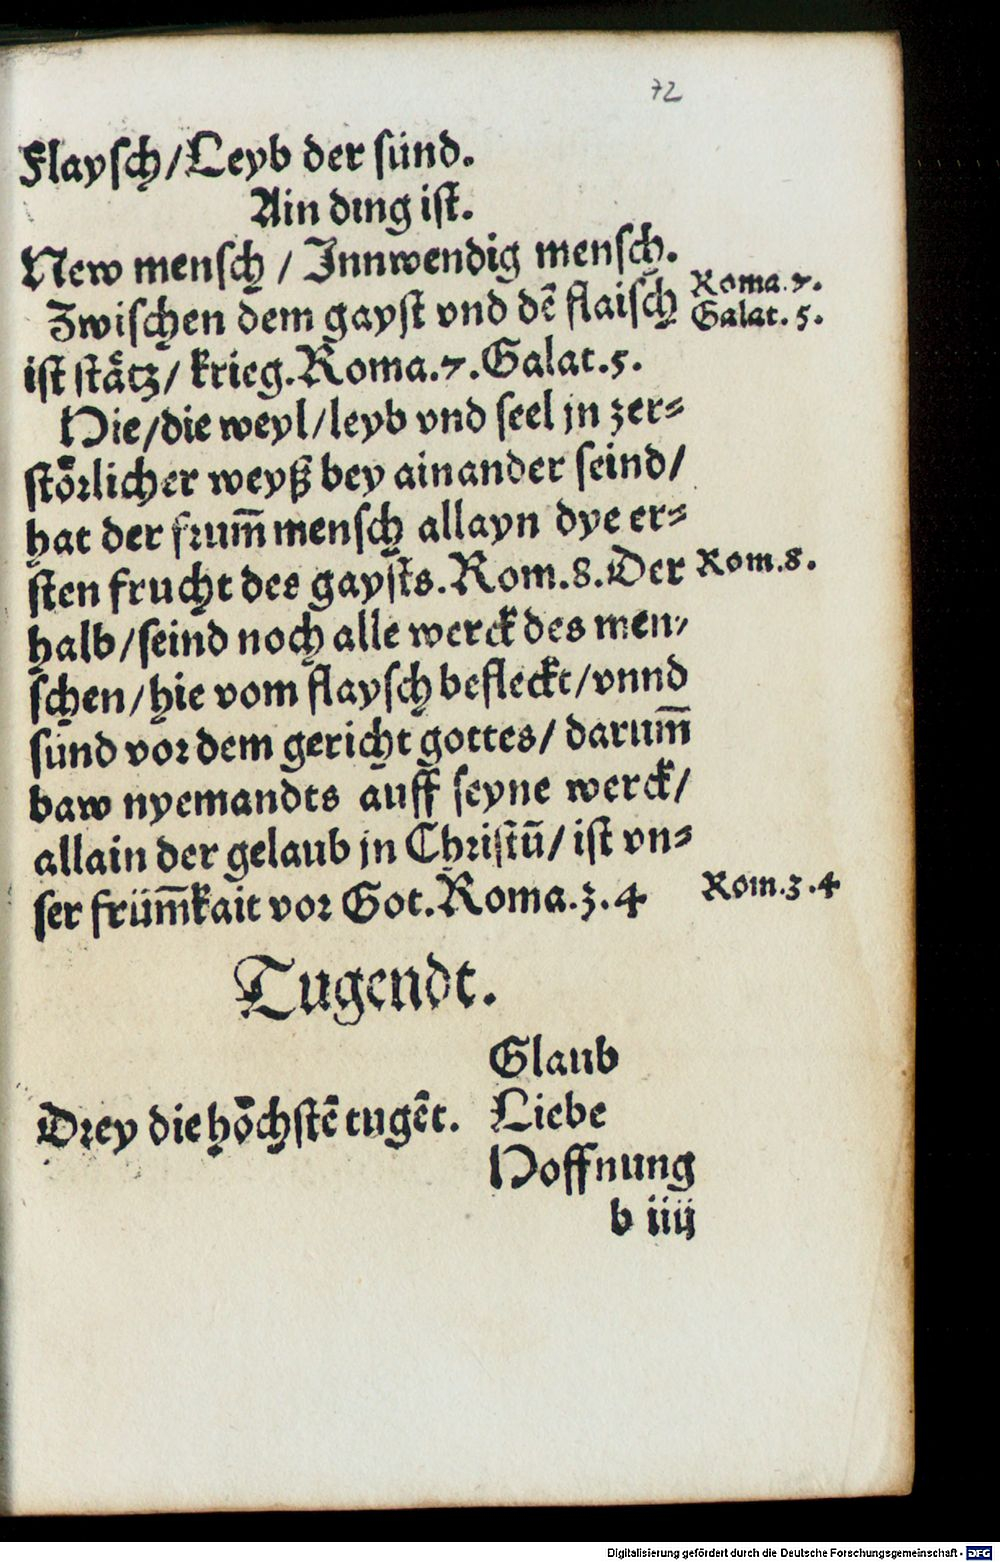 72
Flaysch/Leyb der sünd.
Ain ding ist.
New mensch / Innwendig mensch.
Zwischen dem gayst vnd dē flaisch
Roma.7.
Galat.5.
ist stätz/ krieg.Roma.7.Galat.5.
Hie/die weyl/leyb vnd seel jn zer=
störlicher weyß bey ainander seind/
hat der frum̄ mensch allayn dye er=
sten frucht des gaysts.Rom.8.Der
Rom.8.
halb/seind noch alle werck des men=
schen/hie vom flaysch befleckt/vnnd
sünd vor dem gericht gottes/ darum̄
baw nyemandts auff seyne werck/
allain der gelaub jn Christū/ ist vn=
ser früm̄kait vor Got.Roma.3.4
Rom.3.4
Tugendt.
Glaub
Drey die höchstē tugēt.
Liebe
Hoffnung
b iiij
Digitalisierung gefördert durch die Deutsche Forschungsgemeinschaft - DFG